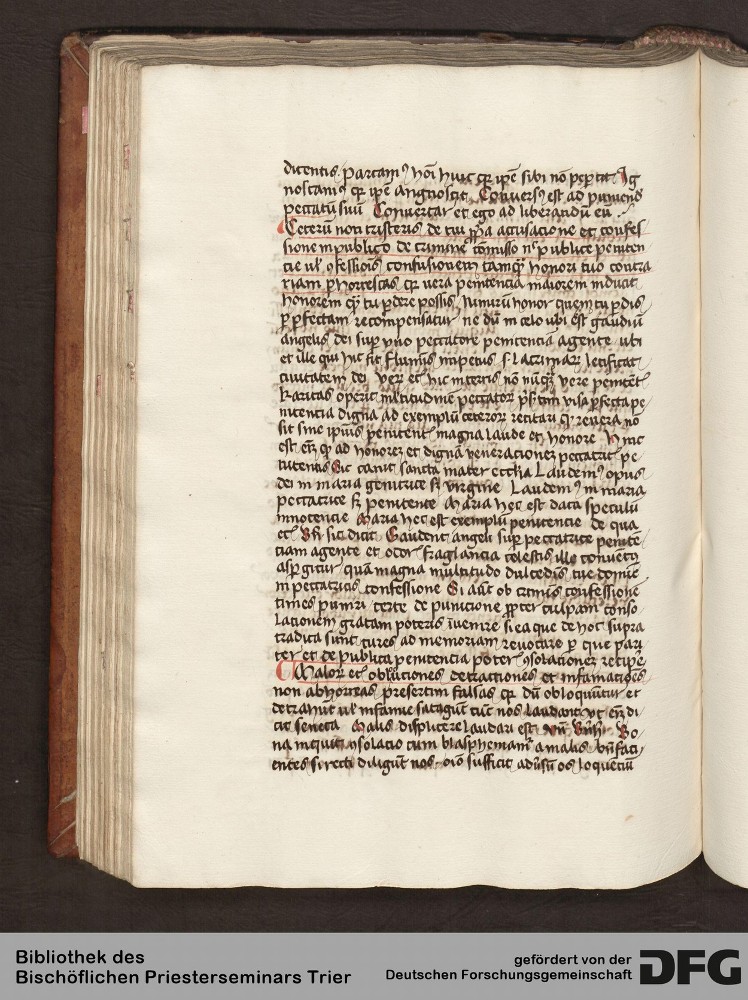 dicentis. Parcam9 hoi huic qr ipe sibi no pepcit Ig
noscam9 qr ipe Angnoscit Conuers9 est ad puniend
peccatu suu Conuertar et ego ad liberandu eu .
Ceteru non tristeris de tui ipa accusacione et confes
sione in publico de crimine comisso n publice peniten
cie ul 9fessiois confusionem tamq honori tuo contra
riam phorrescas qr vera penitencia maiorem inducit
honorem q tu pdere possis Nimiru honor quem tu pdis
p pfectam recompensatur ne du in celo ubi est gaudiu
angelis dei sup vno peccatore penitencia agente ubi
et ille qui hic fit flumis impetus s lacrimar letificat
ciuitatem dei ver et hic in terris no nuq vere penitet
karitas operit multitudine peccator psertim visa pfecta pe
nitencia digna ad exemplu ceteror recitari q reuera no
sit sine ipius penitent magna laude et honore hinc
est em q ad honorez et digna veneracionez peccatric pe
nitentis Sic canit sancta mater ecclia Laudem9 opus
dei in maria genitrice s virgine Laudem9 in maria
peccatrice s penitente Maria hec est data speculu
innocencie Maria hec est exemplu penitencie de qua
et Bn sic dicit Gaudent angeli sup peccatrice penite
ciam agente et odor fraglancia celestis ille conuetu
aspgitur quam magna multitudo dulcedis tue domine
in peccatricis confessione Si aut ob criminis confessione
times puniri certe de punicione ppter culpam conso
lacionem gratam poteris iuenire si ea que de hoc supra
tradita sunt cures ad memoriam reuocare p que pari
ter et de publica penitencia poter 9solacionez recipe
Malor et oblocutiones detractiones et infamacioes
non abhorreas presertim falsas qr du obloquntur et
detrahut ul infamie satagut tuc nos laudant vt em di
cit seneca Malis displicere laudari est
na inquit 9solacio cum blasphemam a malis bnfaci
entes si recti diligut nos oio sufficit adusu os loquenciu
Bibliothek des
Bischöflichen Priesterseminars Trier
gefördert von der
Deutschen Forschungsgemeinschaft
DFG